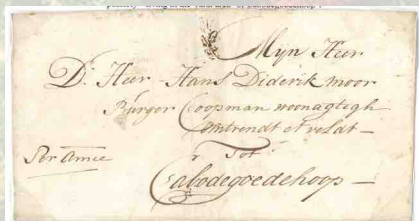 Myn Heer
D: Heer Hans Diderik moor
Burger Coopman woonagtigh
omtrendt et veldt
Per Amie
Tot
Cabodegoedehoop